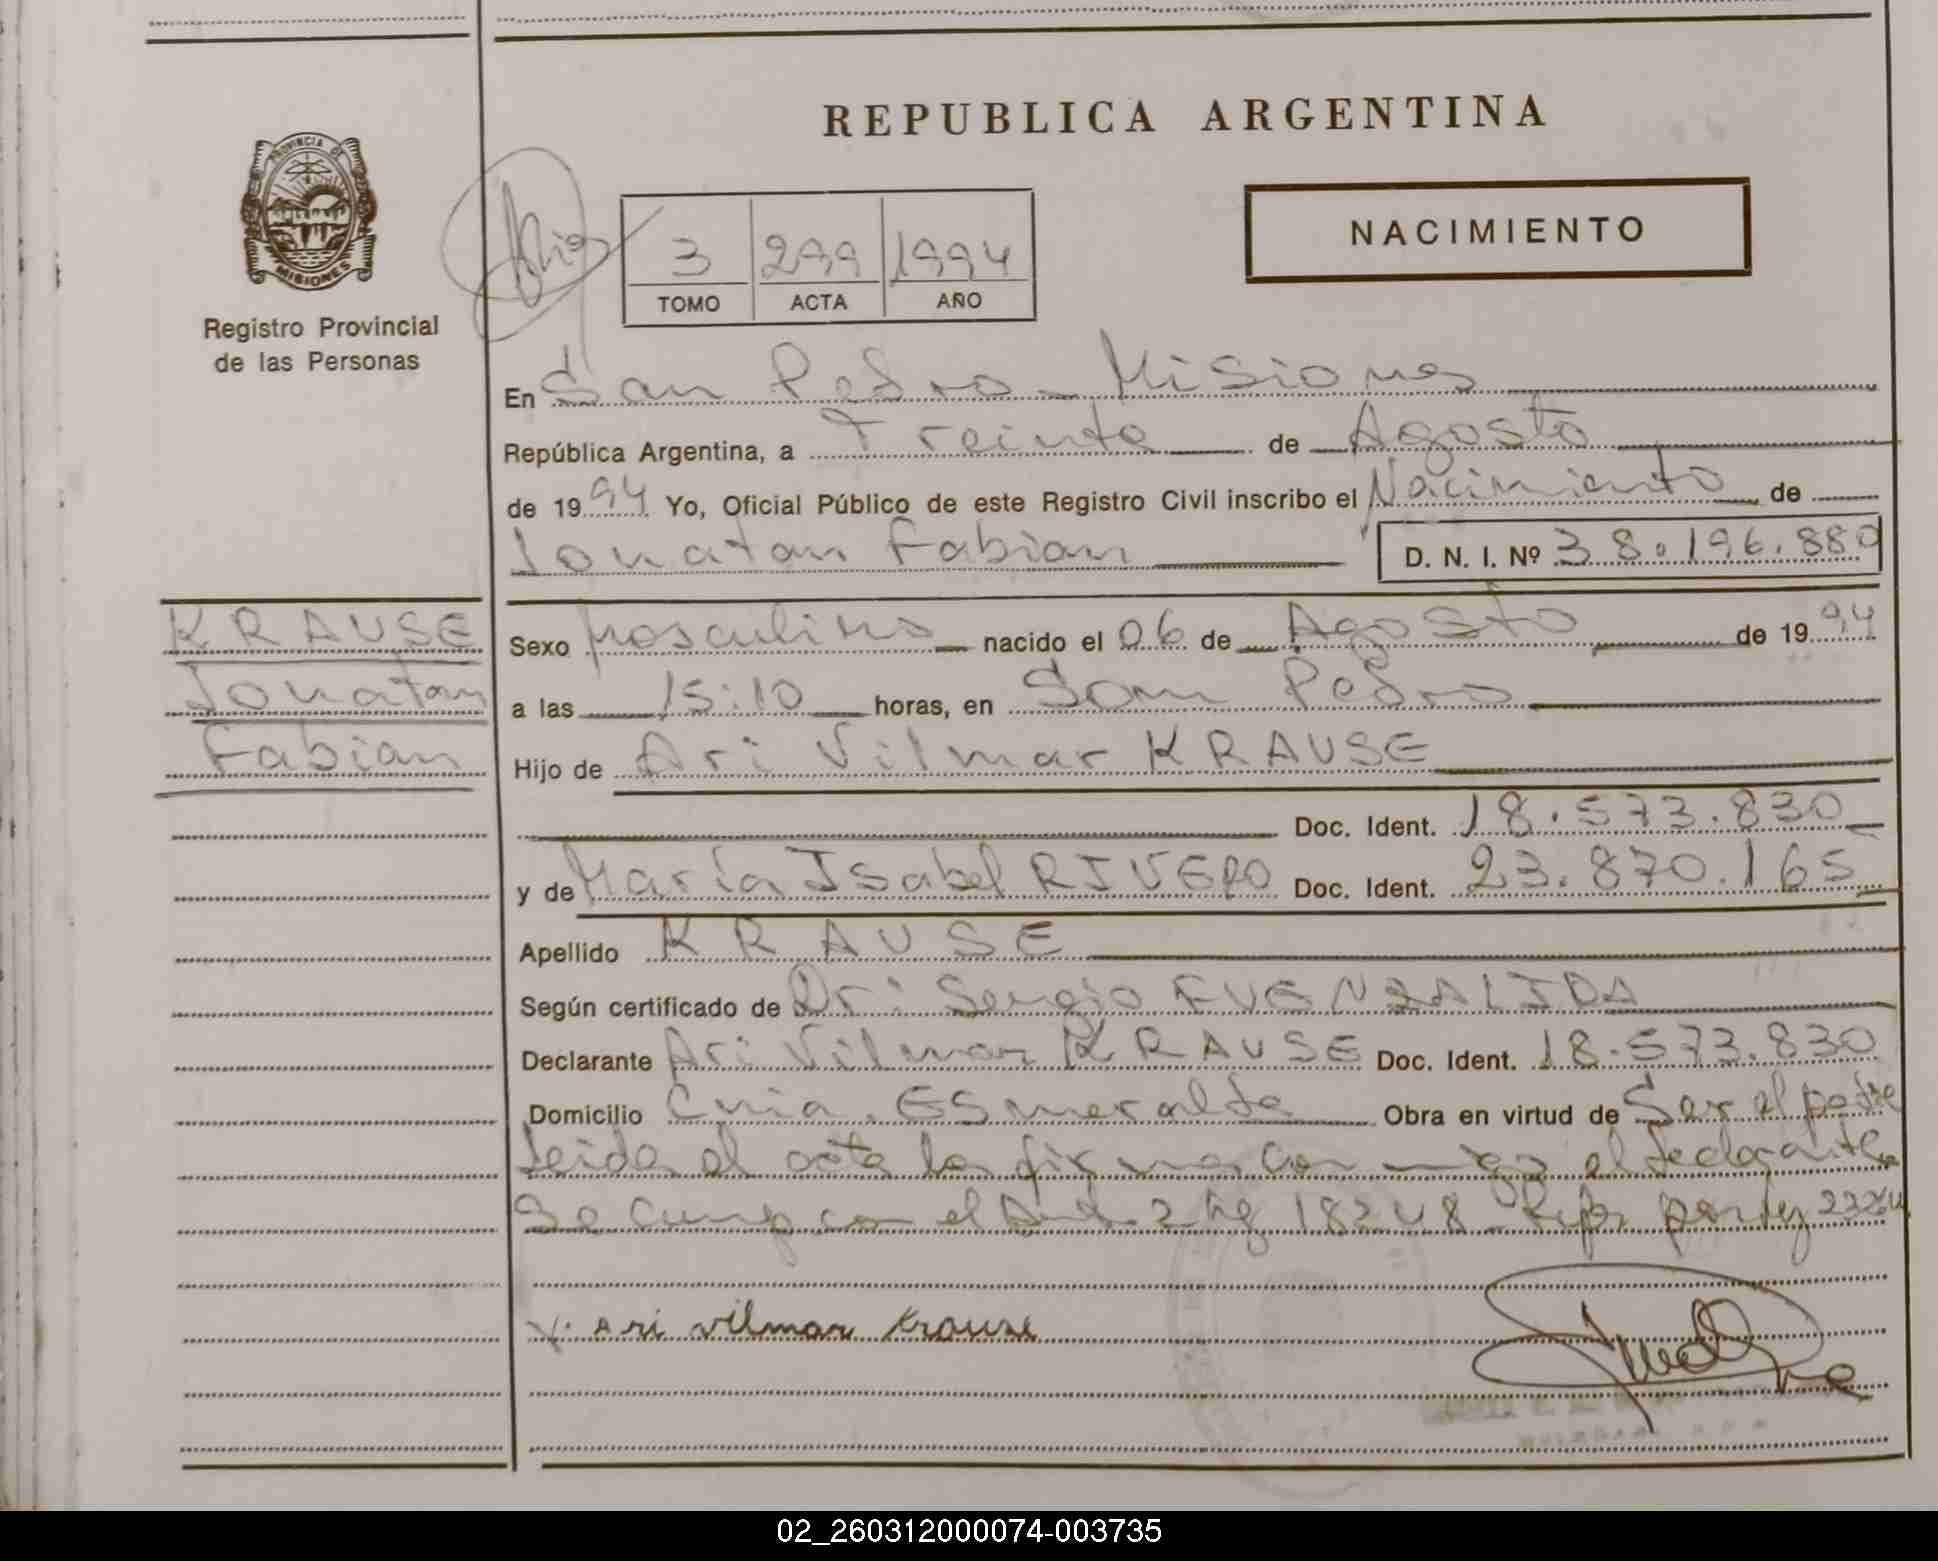 REPUBLICA ARGENTINA
PROVINCIA DE
MISIONES
Registro Provincial
de las Personas
3 299 1994
TOMO ACTA AÑO
NACIMIENTO
En San Pedro - Misiones
República Argentina, a Treinta de Agosto
de 1994 Yo, Oficial Público de este Registro Civil inscribo el Nacimiento de
Jonatan Fabian D. N. I. Nº 38.196.880
KRAUSE
Jonatan
Fabian
Sexo Masculino nacido el 06 de Agosto de 1994
a las 15:10 horas, en San Pedro
Hijo de Ari Vilmar KRAUSE
Doc. Ident. 18.573.830
y de María Isabel RIVERO Doc. Ident. 23.870.165
Apellido KRAUSE
Según certificado de Dr: Sergio FUENZALIDA
Declarante Ari Vilmar KRAUSE Doc. Ident. 18.573.830
Domicilio Cnia. Esmeralda Obra en virtud de Ser el padre
Leida el acta la firma con migo el declarante
Se cump con el Art. 2 Ley 18248 por ley
Ari Vilmar Krause
02_260312000074-003735